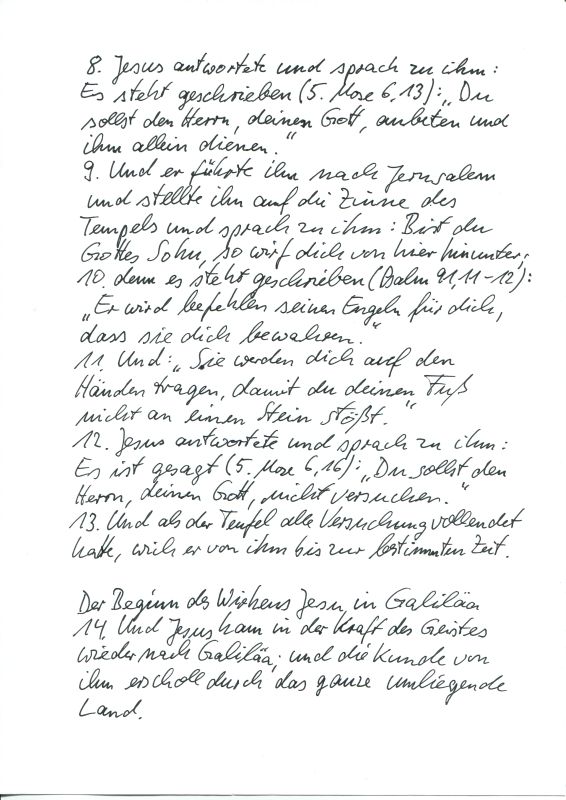 8. Jesus antwortete und sprach zu ihm:
Es steht geschrieben (5. Mose 6,13): „Du
sollst den Herrn, deinen Gott, anbeten und
ihm allein dienen."
9. Und er führte ihn nach Jerusalem
und stellte ihn auf die Zinne des
Tempels und sprach zu ihm: Bist du
Gottes Sohn, so wirf dich von hier hinunter;
10. denn es steht geschrieben (Psalm 91,11-12):
„Er wird befehlen seinen Engeln für dich,
dass sie dich bewahren."
11. Und: „Sie werden dich auf den
Händen tragen, damit du deinen Fuß
nicht an einen Stein stößt."
12. Jesus antwortete und sprach zu ihm:
Es ist gesagt (5. Mose 6,16): „Du sollst den
Herrn, deinen Gott, nicht versuchen."
13. Und als der Teufel alle Versuchung vollendet
hatte, wich er von ihm bis zur bestimmten Zeit.
Der Beginn des Wirkens Jesu in Galiläa
14. Und Jesus kam in der Kraft des Geistes
wieder nach Galiläa; und die Kunde von
ihm erscholl durch das ganze umliegende
Land.